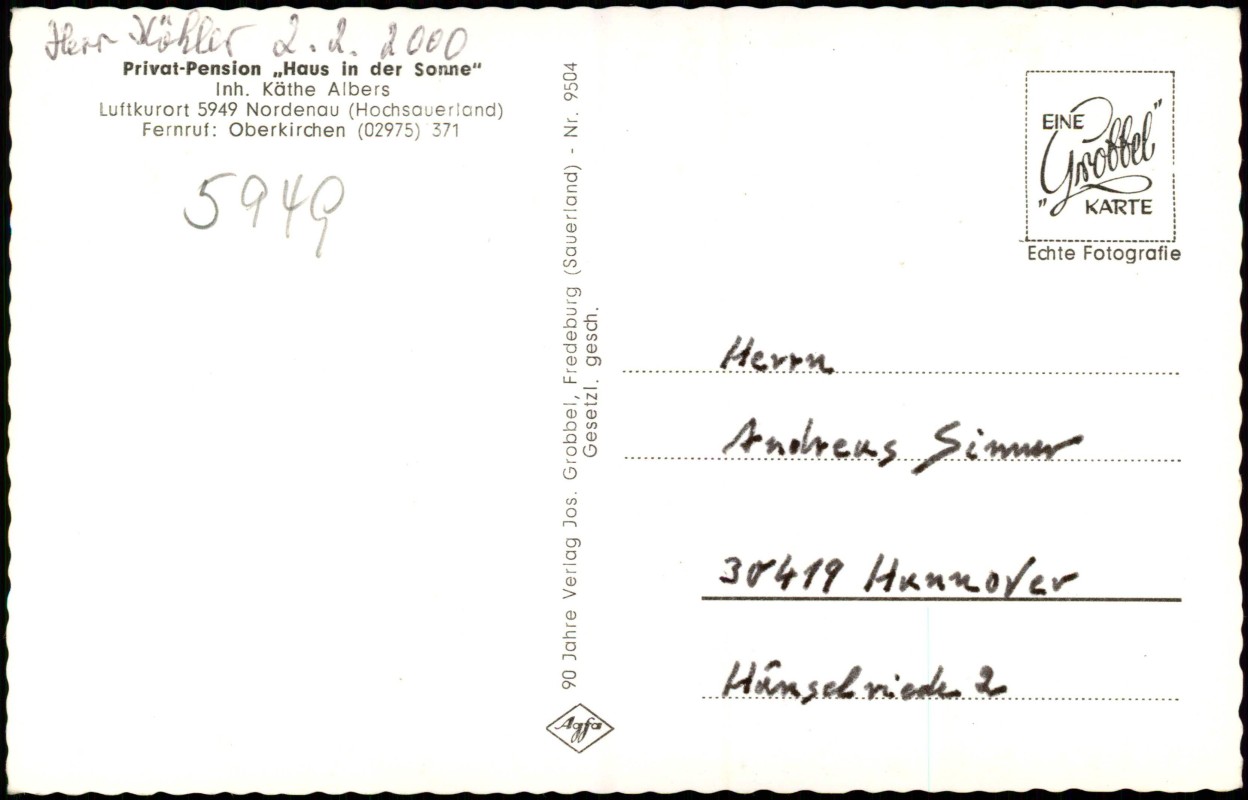 Herr Köhler 2.2.2000
Privat-Pension „Haus in der Sonne“
Inh. Käthe Albers
Luftkurort 5949 Nordenau (Hochsauerland)
Fernruf: Oberkirchen (02975) 371
5949
90 Jahre Verlag Jos. Grobbel, Fredeburg (Sauerland) - Nr. 9504
Gesetzl. gesch.
Agfa
EINE
„Grobbel”
KARTE
Echte Fotografie
Herrn
Andreas
30419 Hannover
Hänselriede 2